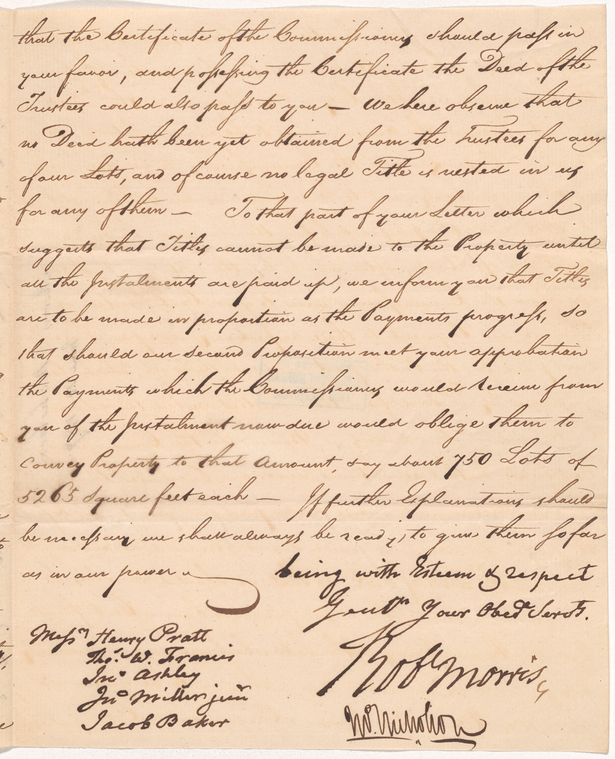 that the Certificate of the Commissioners should pass in
your favor, and possessing the Certificate the Deed of the
Trustees could also pass to you — We here observe that
no Deed hath been yet obtained from the Trustees for any
of our Lots, and of course no legal Title is vested in us
for any of them — To that part of your Letter which
suggests that Titles cannot be made to the Property until
all the Instalments are paid up, we inform you that Titles
are to be made in proportion as the Payments progress, so
that should our second Proposition meet your approbation
the Payments which the Commissioners would receive from
you of the Instalment now due would oblige them to
Convey Property to that Amount say about 750 Lots of
5265 Square feet each — If further Explanations should
be necessary we shall always be ready to give them so far
as in our power
being with Esteem & respect
Gentn Your Obedt Servts.
Messrs Henry Pratt
Thos. W. Francis
Jno Ashley
Jno Miller junr
Jacob Baker
Robt Morris
Jno. Nicholson